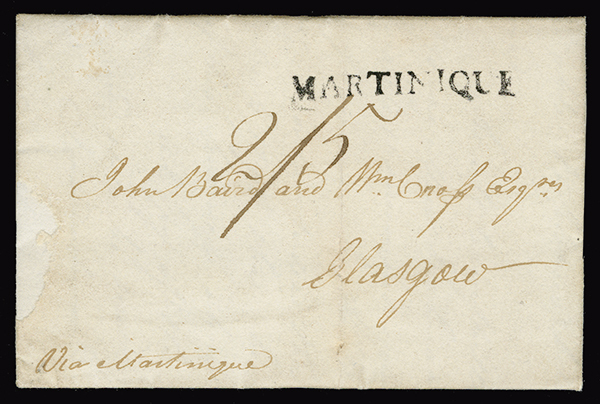 MARTINIQUE
2/5
John Baird and Wm. Cross Esqrs
Glasgow
Via Martinique